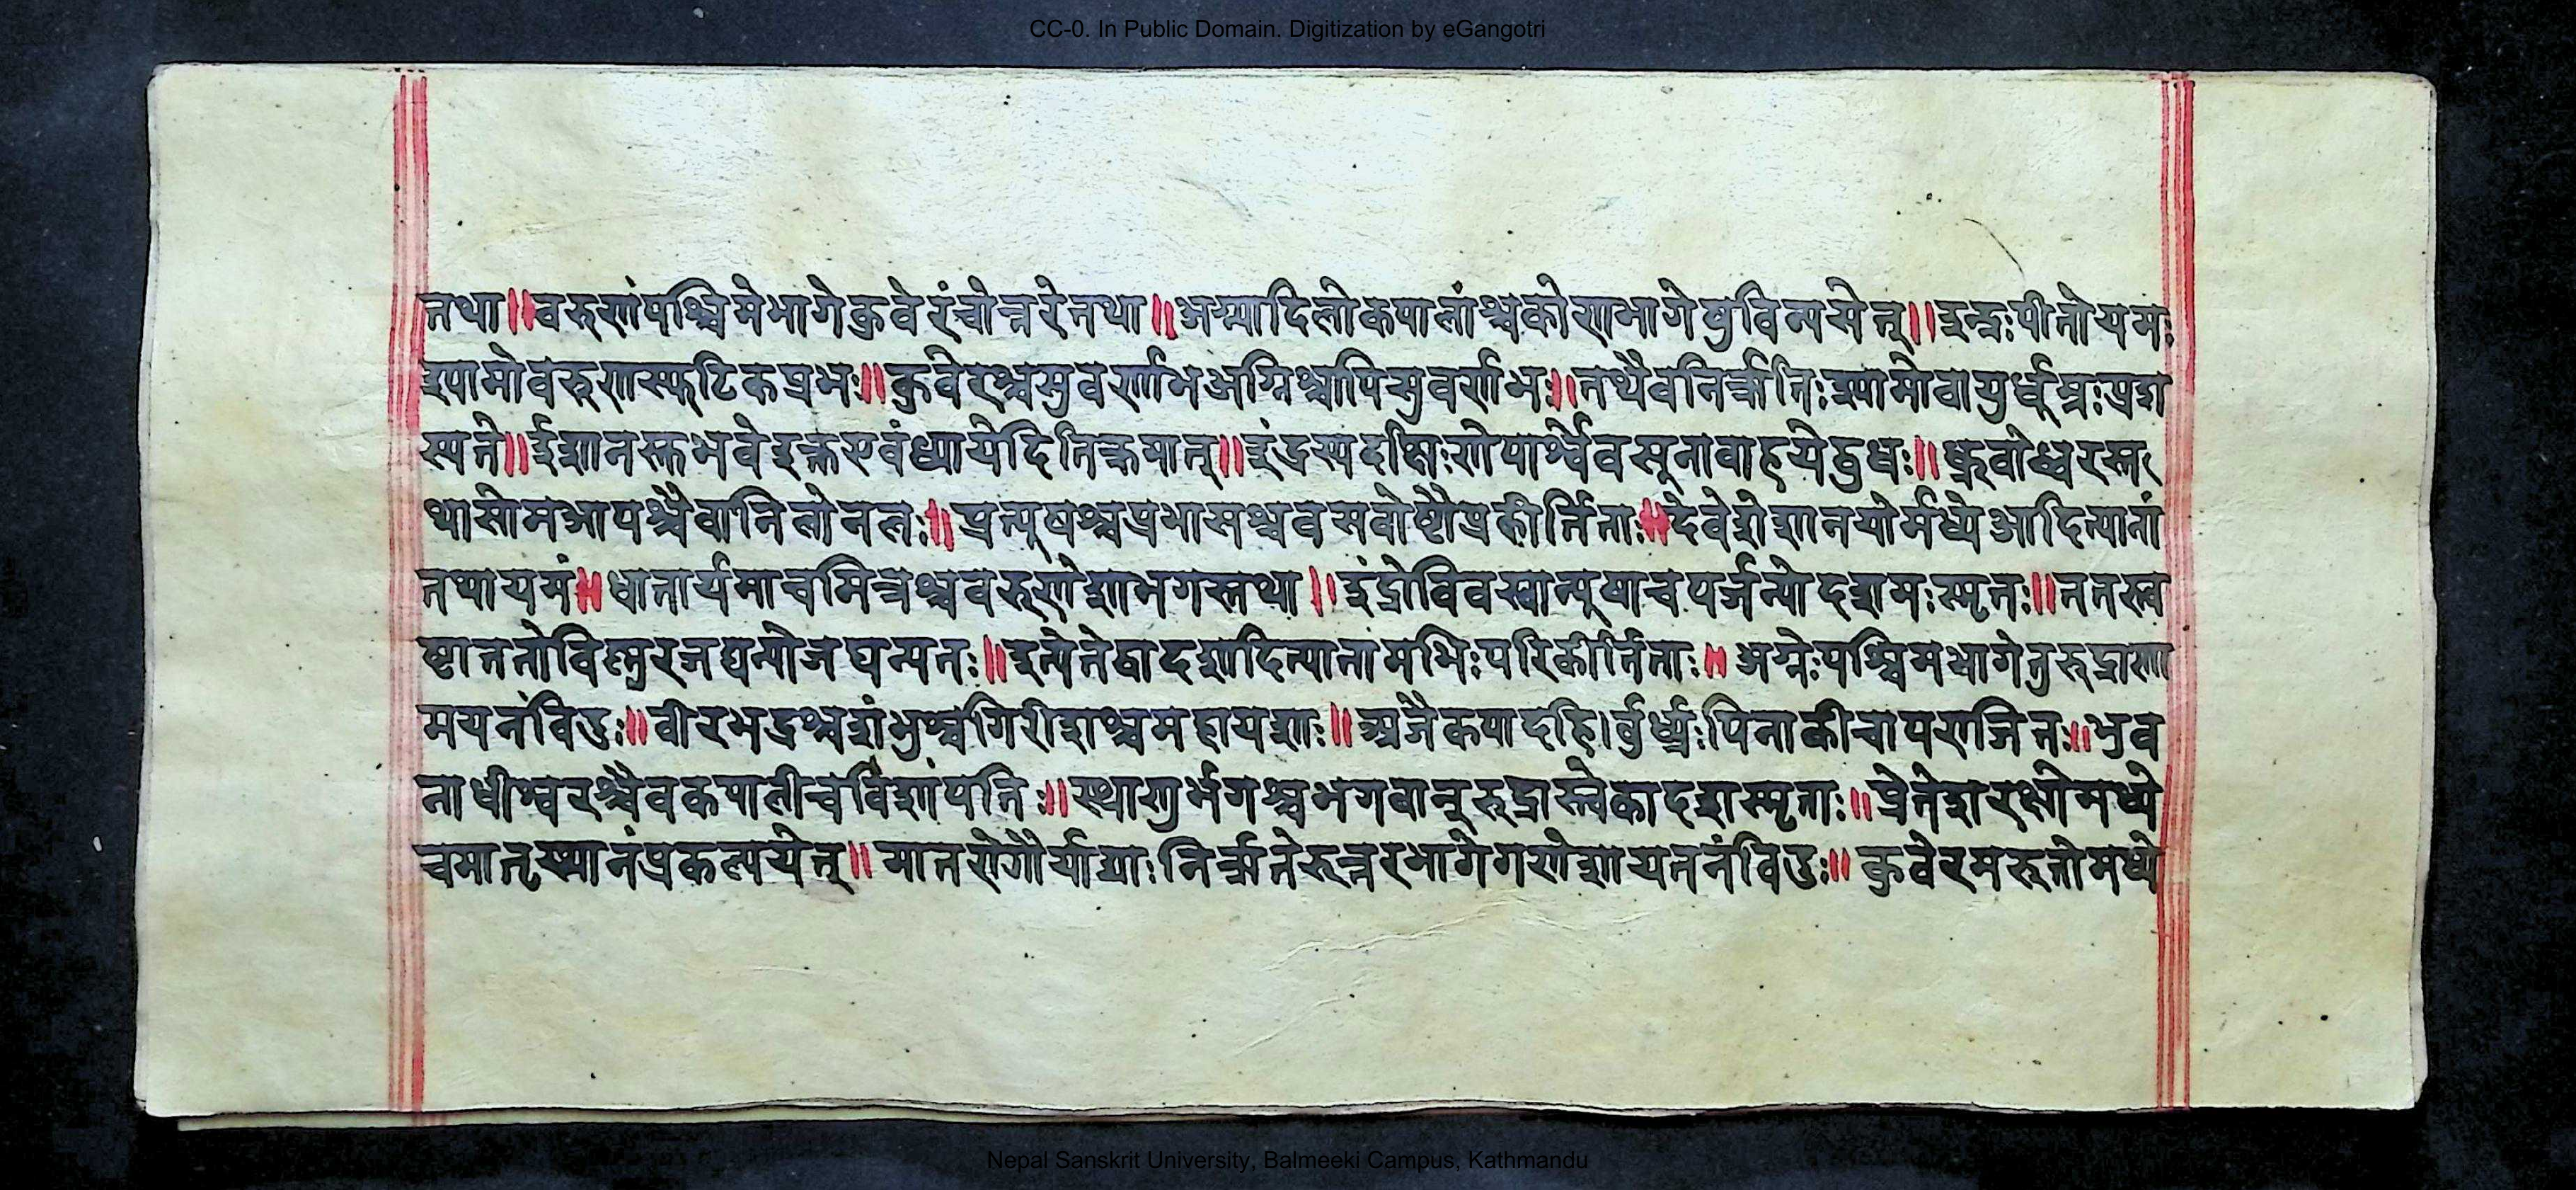 CC-0. In Public Domain. Digitization by eGangotri
तथा॥वरुणंपश्चिमेभागेकुवेरंचोत्तरेतथा॥अग्न्यादिलोकपालांश्चकोणभागेषुविन्यसेत्॥इन्द्रःपीतोयमः
श्यामोवरुणस्फटिकप्रभः॥कुवेरश्चसुवर्णाभअग्निश्चापिसुवर्णाभः॥तथैवनिर्ऋतिःश्यामोवायुर्धूम्रःप्रश
स्यते॥ईशानस्तुभवेद्रक्तएवंध्यायेदितिक्रमात्॥इंद्रस्यदक्षिःणेपार्श्वेवसूनावाहयेद्बुधः॥ध्रुवोध्वरस्त
थासोमआपश्चैवानिलोनलः॥प्रत्यूषश्चप्रभासश्चवसवोष्टौप्रकीर्त्तिताः॥देवेशेशानयोर्मध्येआदित्यानां
तथायमं॥धातार्यमाचमित्रश्चवरुणेशाभगस्तथा॥इंद्रोविवस्वान्पूषाचपर्जन्योदशमःस्मृतः॥ततस्त्व
ष्टाततोविष्णुरजघन्योजघन्यतः॥इत्येतेद्वादशादित्यानामभिःपरिकीर्त्तिताः॥अग्नेःपश्चिमभागेतुरुद्राणा
मयनंविदुः॥वीरभद्रश्चशंभुश्चगिरीशश्चमहायशाः॥अजैकपादहि।र्वुर्ध्न्यःपिनाकीचापराजितः॥भुव
नाधीश्वरश्चैवकपालीचविशांपतिः॥स्थाणुर्भगश्चभगवान्रुद्रास्त्वेकादशस्मृताः॥प्रेतेशरक्षोमध्ये
चमातृस्थानंप्रकल्पयेत्॥मातरोगौर्याद्याःनिर्ऋतेरुत्तरभागेगणेशायतनंविदुः॥कुवेरमरुतोमध्ये
Nepal Sanskrit University, Balmeeki Campus, Kathmandu